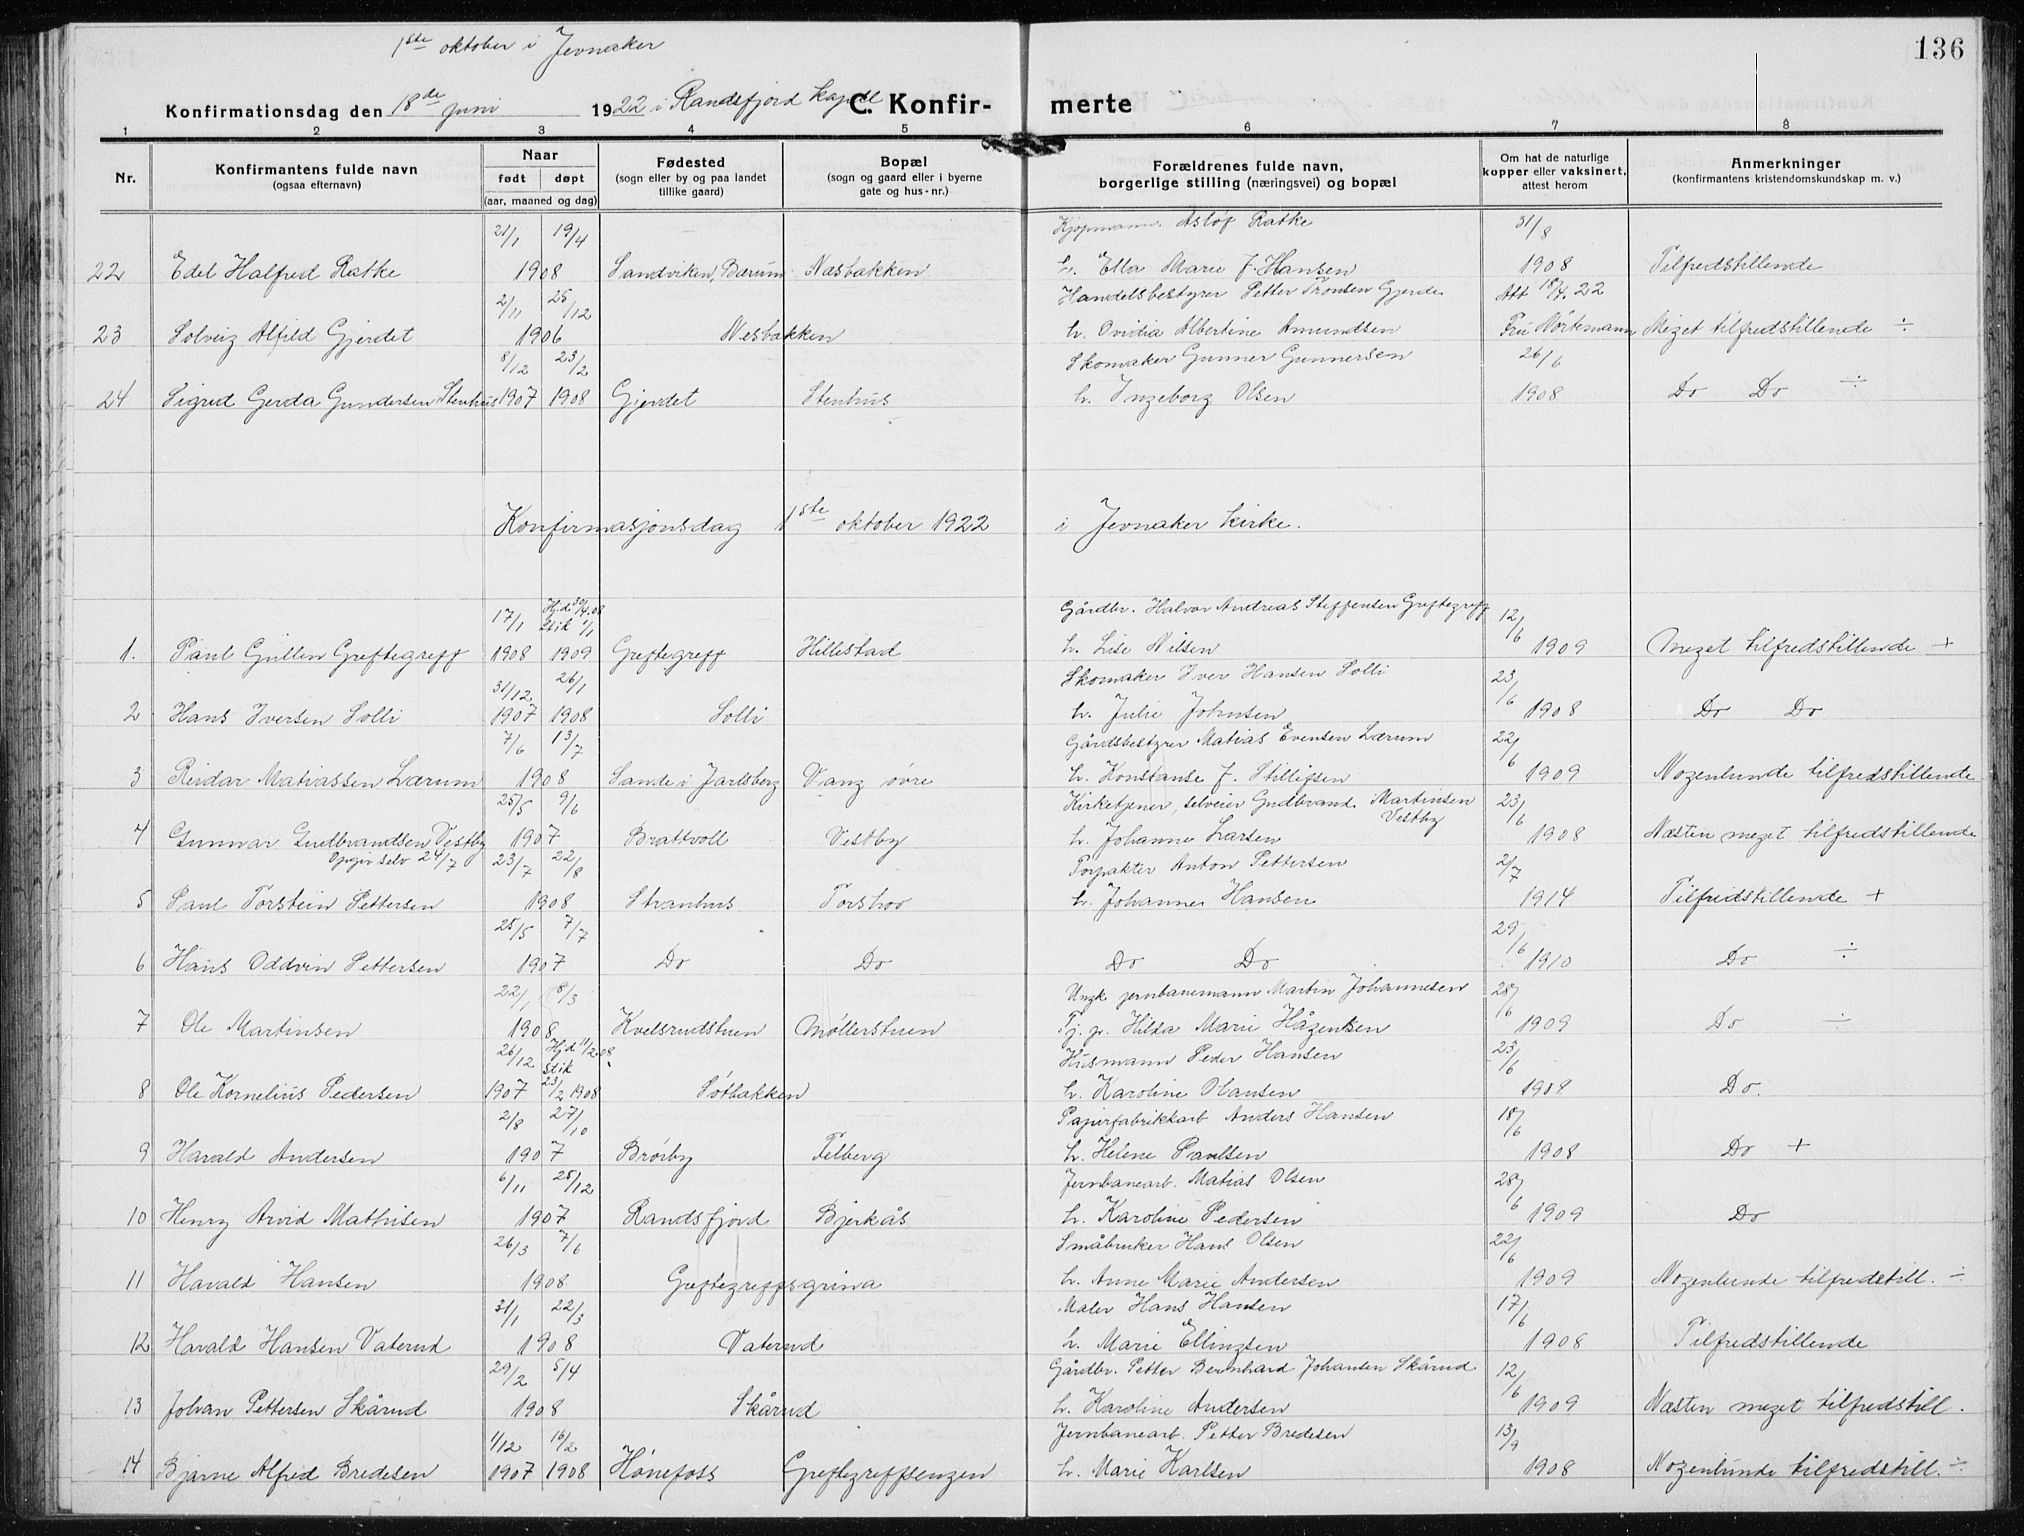 136
1ste oktober i Jevnaker
Konfirmationsdag den 18de juni 1922 i Randsfjord kapell C. Konfirmerte
1 2 3 4 5 6 7 8
Nr. Konfirmantens fulde navn (ogsaa efternavn) Naar født døpt (aar, maaned og dag) Fødested (sogn eller by og paa landet tillike gaard) Bopæl (sogn og gaard eller i byerne gate og hus-nr.) Forældrenes fulde navn, borgerlige stilling (næringsvei) og bopæl Om hat de naturlige kopper eller vaksinert, attest herom Anmerkninger (konfirmantens kristendomskundskap m. v.)
21/1 19/4 Kjøpmann Asløf Ratke 31/8
22 Edel Halfred Ratke 1908 Sandviken, Bærum Næsbakken h. Ella Marie f. Hansen 1908 Tilfredstillende
2/11 25/12 Handelsbestyrer Petter Tronsen Gjerde Att 18/4.22
23 Solveig Alfild Gjerdet 1906 Nesbakken h. Ovidia Albertine Amundsen Fru Nørtemann Meget tilfredstillende ÷
8/12 23/2 Skomaker Gunner Gunnersen 26/6
24 Sigrid Gerda Gundersen Stenhus 1907 1908 Gjerdet Stenhus h. Ingeborg Olsen 1908 Do Do ÷
Konfirmasjonsdag 1ste oktober 1922 i Jevnaker kirke.
17/1 Hj.d. 30/4.08 Stik 1/1 Gårdbr. Halvor Andreas Steffensen Greftegreff 12/6
1. Paul Gullen Greftegreff 1908 1909 Greftegreff Hillestad h. Lise Nilsen 1909 Meget tilfredstillende +
31/12 26/1 Skomaker Iver Hansen Solli 23/6
2 Hans Iversen Solli 1907 1908 Solli h. Julie Johnsen 1908 Do Do
7/6 13/7 Gårdsbestyrer Matias Evensen Lærum 22/6
3 Reidar Matiassen Lærum 1908 Sande i Jarlsberg Vang øvre h. Konstanse f. Stilligsen 1909 Nogenlunde tilfredstillende
25/5 9/6 Kirketjener, selveier Gudbrand Martinsen Vestby 23/6
4 Gunnar Gudbrandsen Vestby 1907 Brattvoll Vestby h. Johanne Larsen 1908 Næsten meget tilfredstillende
Opgir selv 24/7 23/7 22/8 Forpakter Anton Pettersen 2/7
5 Paul Torstein Pettersen 1908 Stranhus Torshov h. Johanne Hansen 1914 Tilfredstillende +
25/5 7/7 29/6
6 Hans Oddvin Pettersen 1907 Do Do Do Do 1910 Do ÷
22/1 8/3 Ungk. jernbanemann Martin Johannesen 28/6
7 Ole Martinsen 1908 Kvelsrudstuen Møllerstuen Tj. p. Hilda Marie Hågensen 1909 Do ÷
26/12 Hj.d. 11/2.08 Stik Husmann Peder Hansen 23/6
8 Ole Kornelius Pedersen 1907 23/2 1908 Søtbakken h. Karoline Olausen 1908 Do.
2/8 27/10 Papirfabrikkarb Anders Hansen 18/6
9 Harald Andersen 1907 Brørby Felberg h. Helene Paulsen 1908 Do +
6/11 25/12 Jernbanearb. Matias Olsen 28/6
10 Henry Arvid Mathisen 1907 Randsfjord Bjerkås h. Karoline Pedersen 1909 Do
26/3 7/6 Småbruker Hans Olsen 22/6
11 Harald Hansen 1908 Greftegreffsgrina h. Anne Marie Andersen 1909 Nogenlunde tilfredstill. ÷
31/1 22/3 Maler Hans Hansen 17/6
12 Harald Hansen Vaterud 1908 Vaterud h. Marie Ellingsen 1908 Tilfredstillende
29/2 5/4 Gårdbr. Petter Bernhard Johansen Skårud 12/6
13 Johan Pettersen Skårud 1908 Skårud h. Karoline Andersen 1909 Næsten meget tilfredstill.
1/12 16/2 Jernbanearb. Petter Bredesen 13/9
14 Bjarne Alfred Bredesen 1907 1908 Hønefoss Greftegreffsengen h. Marie Karlsen 1908 Nogenlunde tilfredstill. ÷